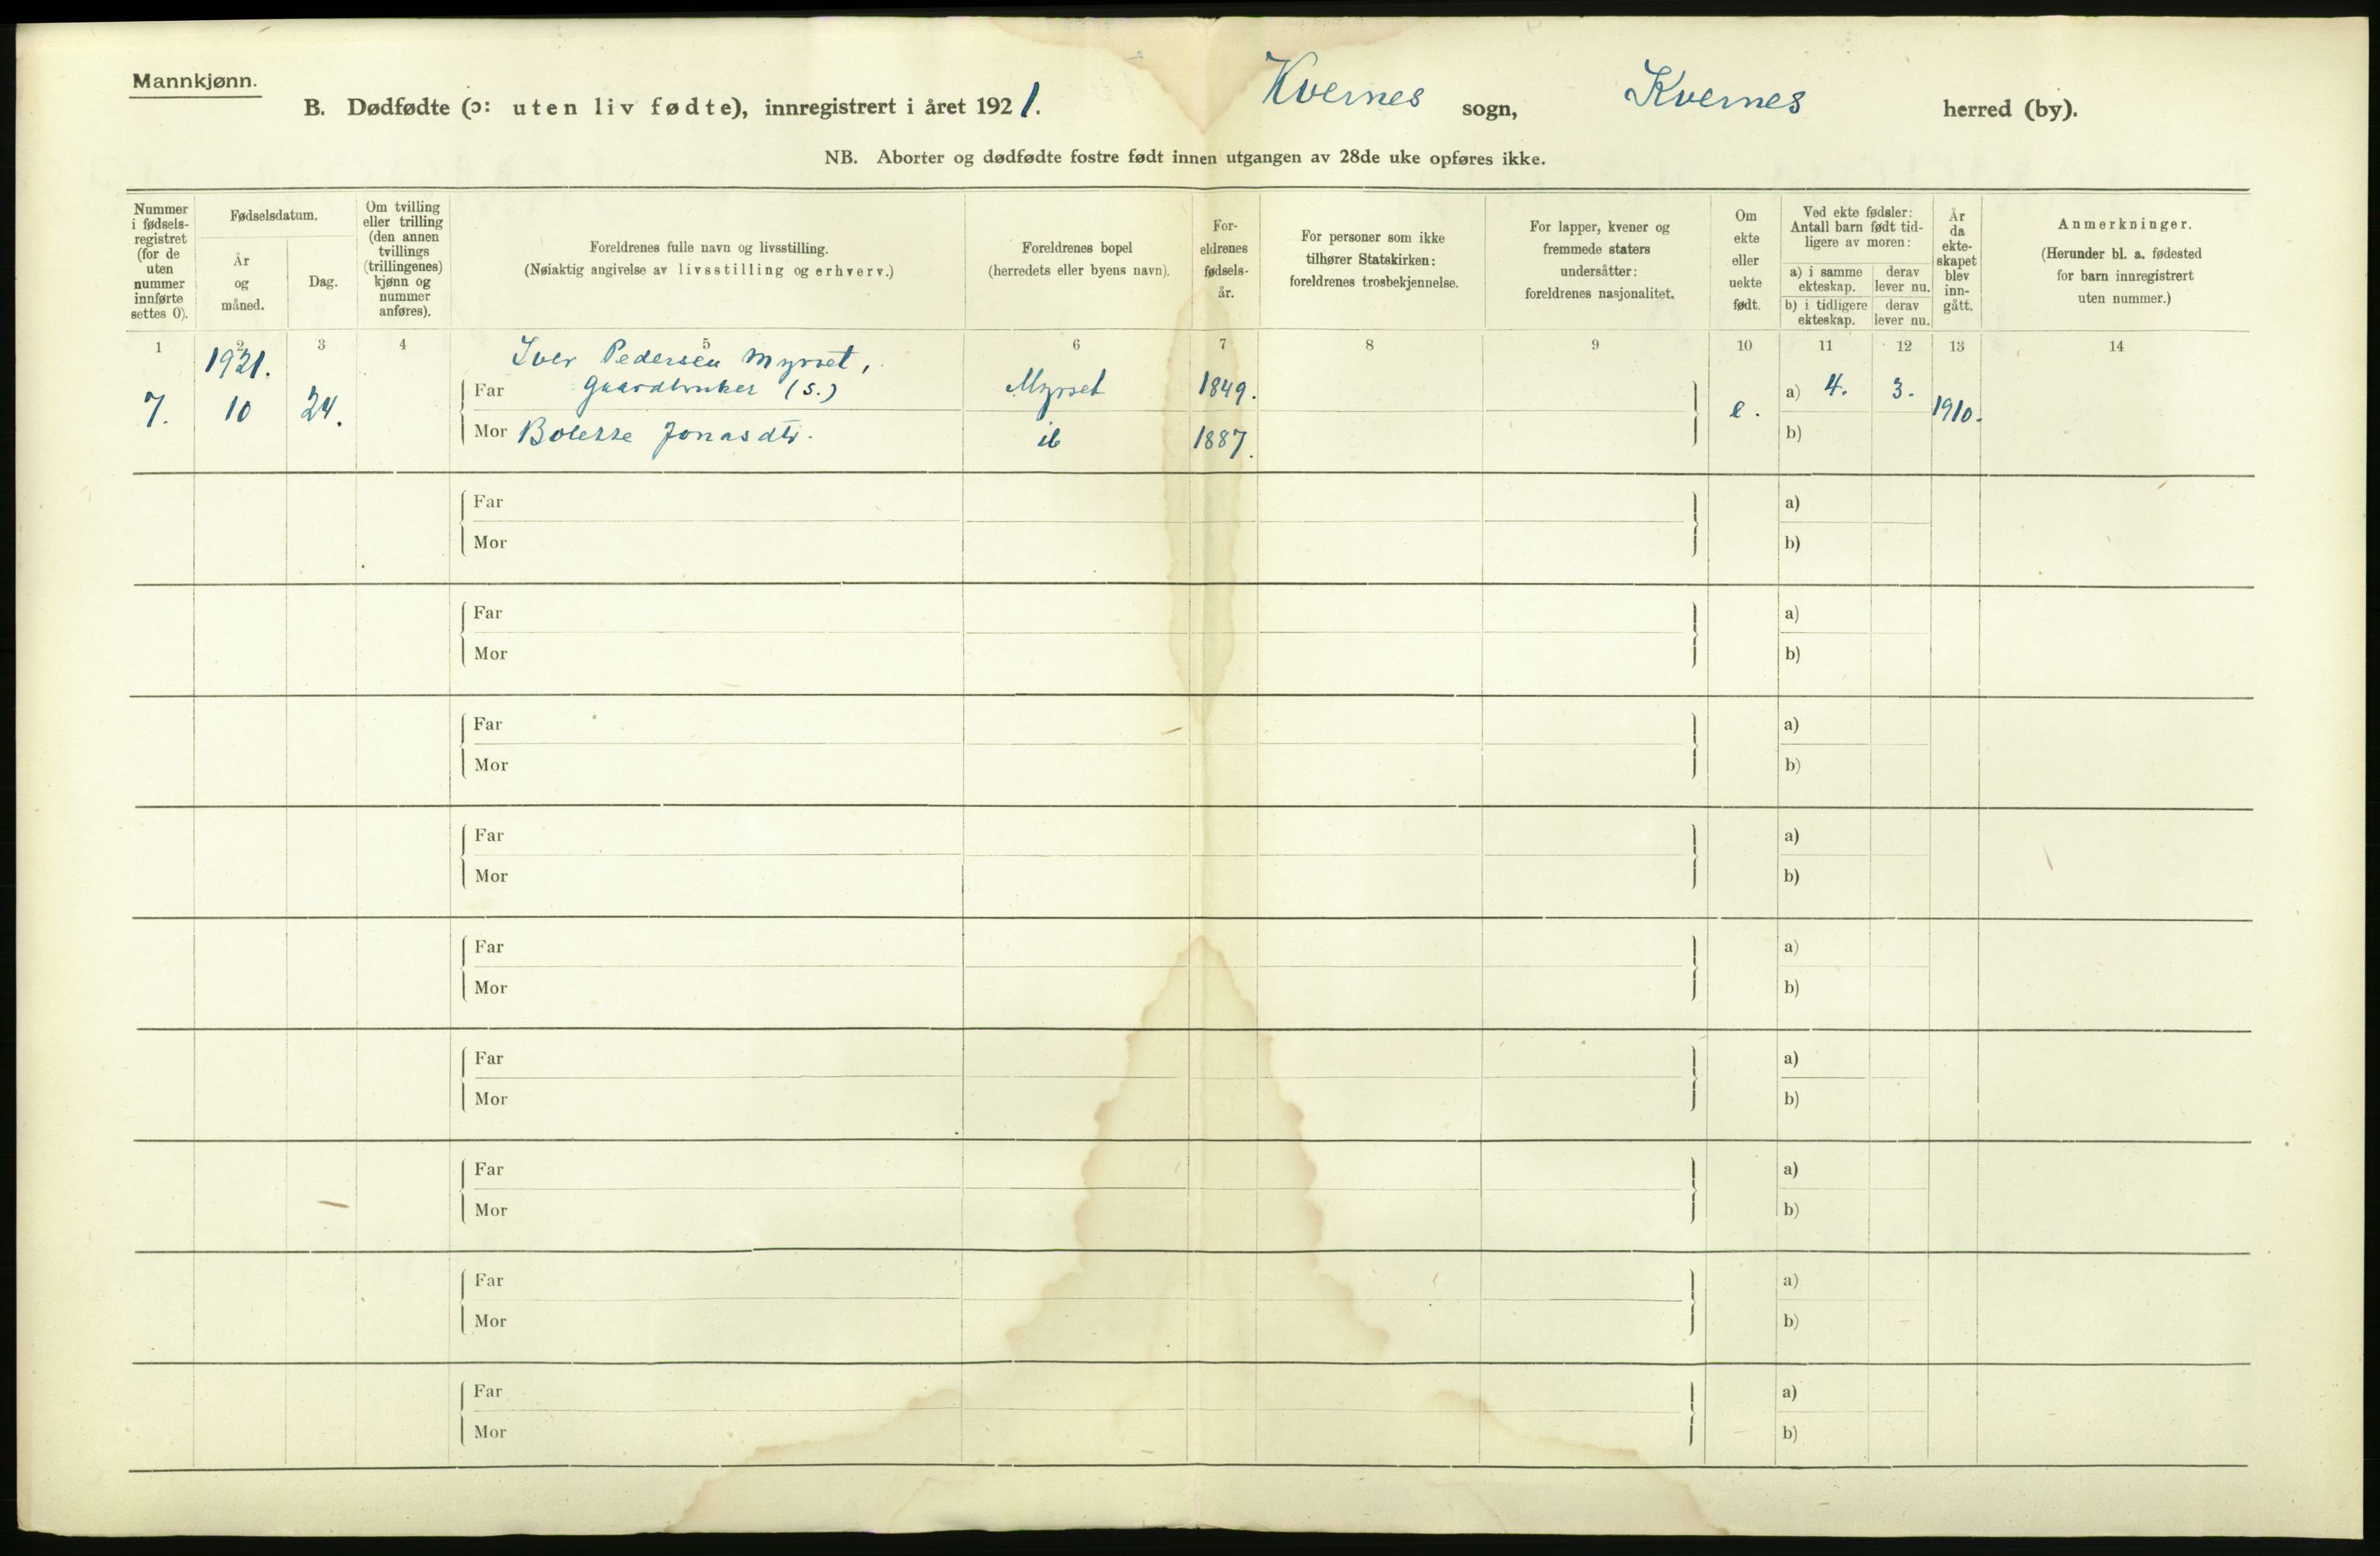 Mannkjønn.
B. Dødfødte (ɔ: uten liv fødte), innregistrert i året 1921. Kvernes sogn, Kvernes herred (by).
NB. Aborter og dødfødte fostre født innen utgangen av 28de uke opføres ikke.
Nummer
i fødsels-
registret
(for de
uten
nummer
innførte
settes 0).
Fødselsdatum.
År
og
måned.
Dag.
Om tvilling
eller trilling
(den annen
tvillings
(trillingenes)
kjønn og
nummer
anføres).
Foreldrenes fulle navn og livsstilling.
(Nøiaktig angivelse av livsstilling og erhverv.)
Foreldrenes bopel
(herredets eller byens navn).
For-
eldrenes
fødsels-
år.
For personer som ikke
tilhører Statskirken:
foreldrenes trosbekjennelse.
For lapper, kvener og
fremmede staters
undersåtter:
foreldrenes nasjonalitet.
Om
ekte
eller
uekte
født.
Ved ekte fødsler:
Antall barn født tid-
ligere av moren:
a) i samme
ekteskap.
derav
lever nu.
b) i tidligere
ekteskap.
derav
lever nu.
År
da
ekte-
skapet
blev
inn-
gått.
Anmerkninger.
(Herunder bl. a. fødested
for barn innregistrert
uten nummer.)
1 2 3 4 5 6 7 8 9 10 11 12 13 14
1921. Iver Pedersen Myrset,
Far Gaardbruker (S.) Myrset 1849. a) 4. 3.
7. 10 24. e. 1910.
Mor Bolette Jonasdtr. ib 1887. b)
Far a)
Mor b)
Far a)
Mor b)
Far a)
Mor b)
Far a)
Mor b)
Far a)
Mor b)
Far a)
Mor b)
Far a)
Mor b)
Far a)
Mor b)
Far a)
Mor b)